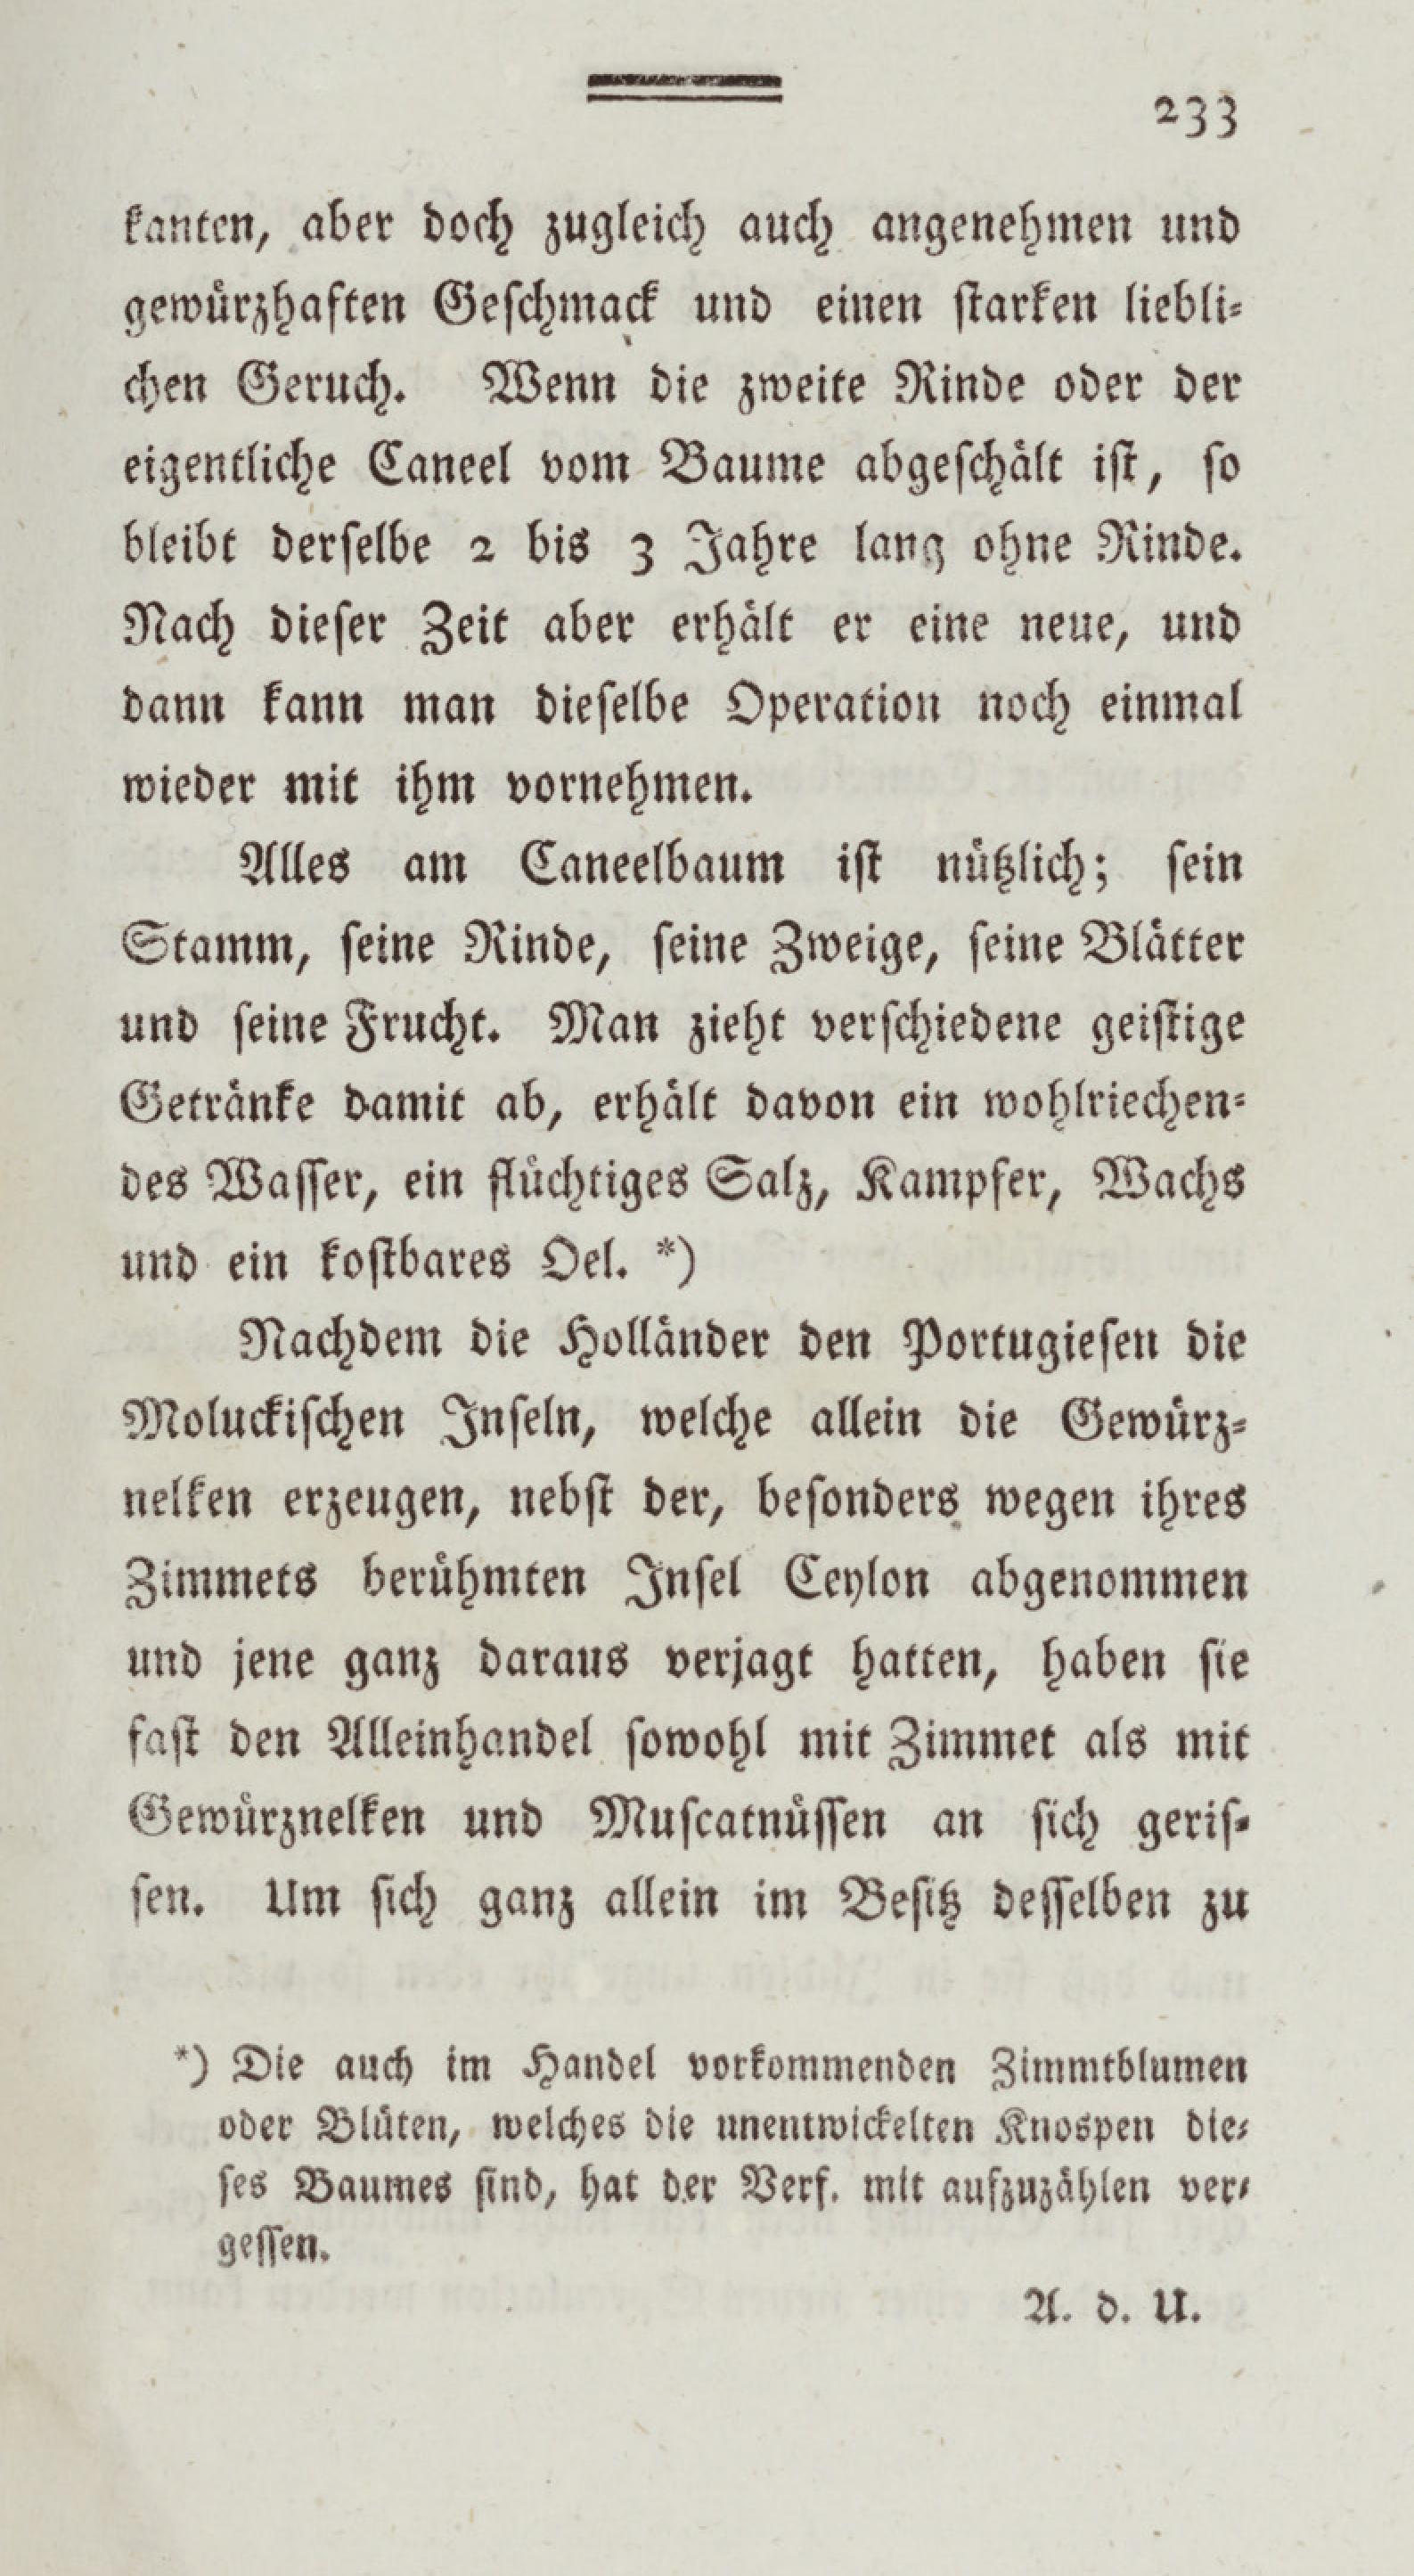 233
kanten, aber doch zugleich auch angenehmen und
gewürzhaften Geschmack und einen starken liebli-
chen Geruch. Wenn die zweite Rinde oder der
eigentliche Caneel vom Baume abgeschält ist, so
bleibt derselbe 2 bis 3 Jahre lang ohne Rinde.
Nach dieser Zeit aber erhält er eine neue, und
dann kann man dieselbe Operation noch einmal
wieder mit ihm vornehmen.
Alles am Caneelbaum ist nützlich; sein
Stamm, seine Rinde, seine Zweige, seine Blätter
und seine Frucht. Man zieht verschiedene geistige
Getränke damit ab, erhält davon ein wohlriechen-
des Wasser, ein flüchtiges Salz, Kampfer, Wachs
und ein kostbares Oel. *)
Nachdem die Holländer den Portugiesen die
Moluckischen Inseln, welche allein die Gewürz-
nelken erzeugen, nebst der, besonders wegen ihres
Zimmets berühmten Insel Ceylon abgenommen
und jene ganz daraus verjagt hatten, haben sie
fast den Alleinhandel sowohl mit Zimmet als mit
Gewürznelken und Muscatnüssen an sich geris-
sen. Um sich ganz allein im Besitz desselben zu
*) Die auch im Handel vorkommenden Zimmtblumen
oder Blüten, welches die unentwickelten Knospen die-
ses Baumes sind, hat der Verf. mit aufzuzählen ver-
gessen.
A. d. U.